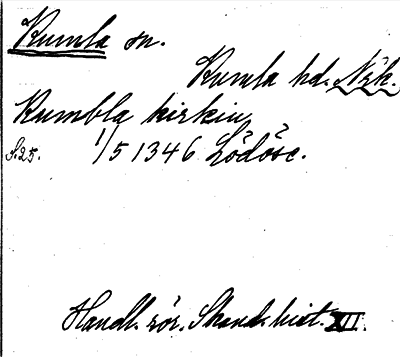 Kumla sn.
Kumla hd. Närk.
Kumbla kirkiu
S. 25. 1/5 1346 Lödöse.
Handl. rör. Skand. hist. XII.